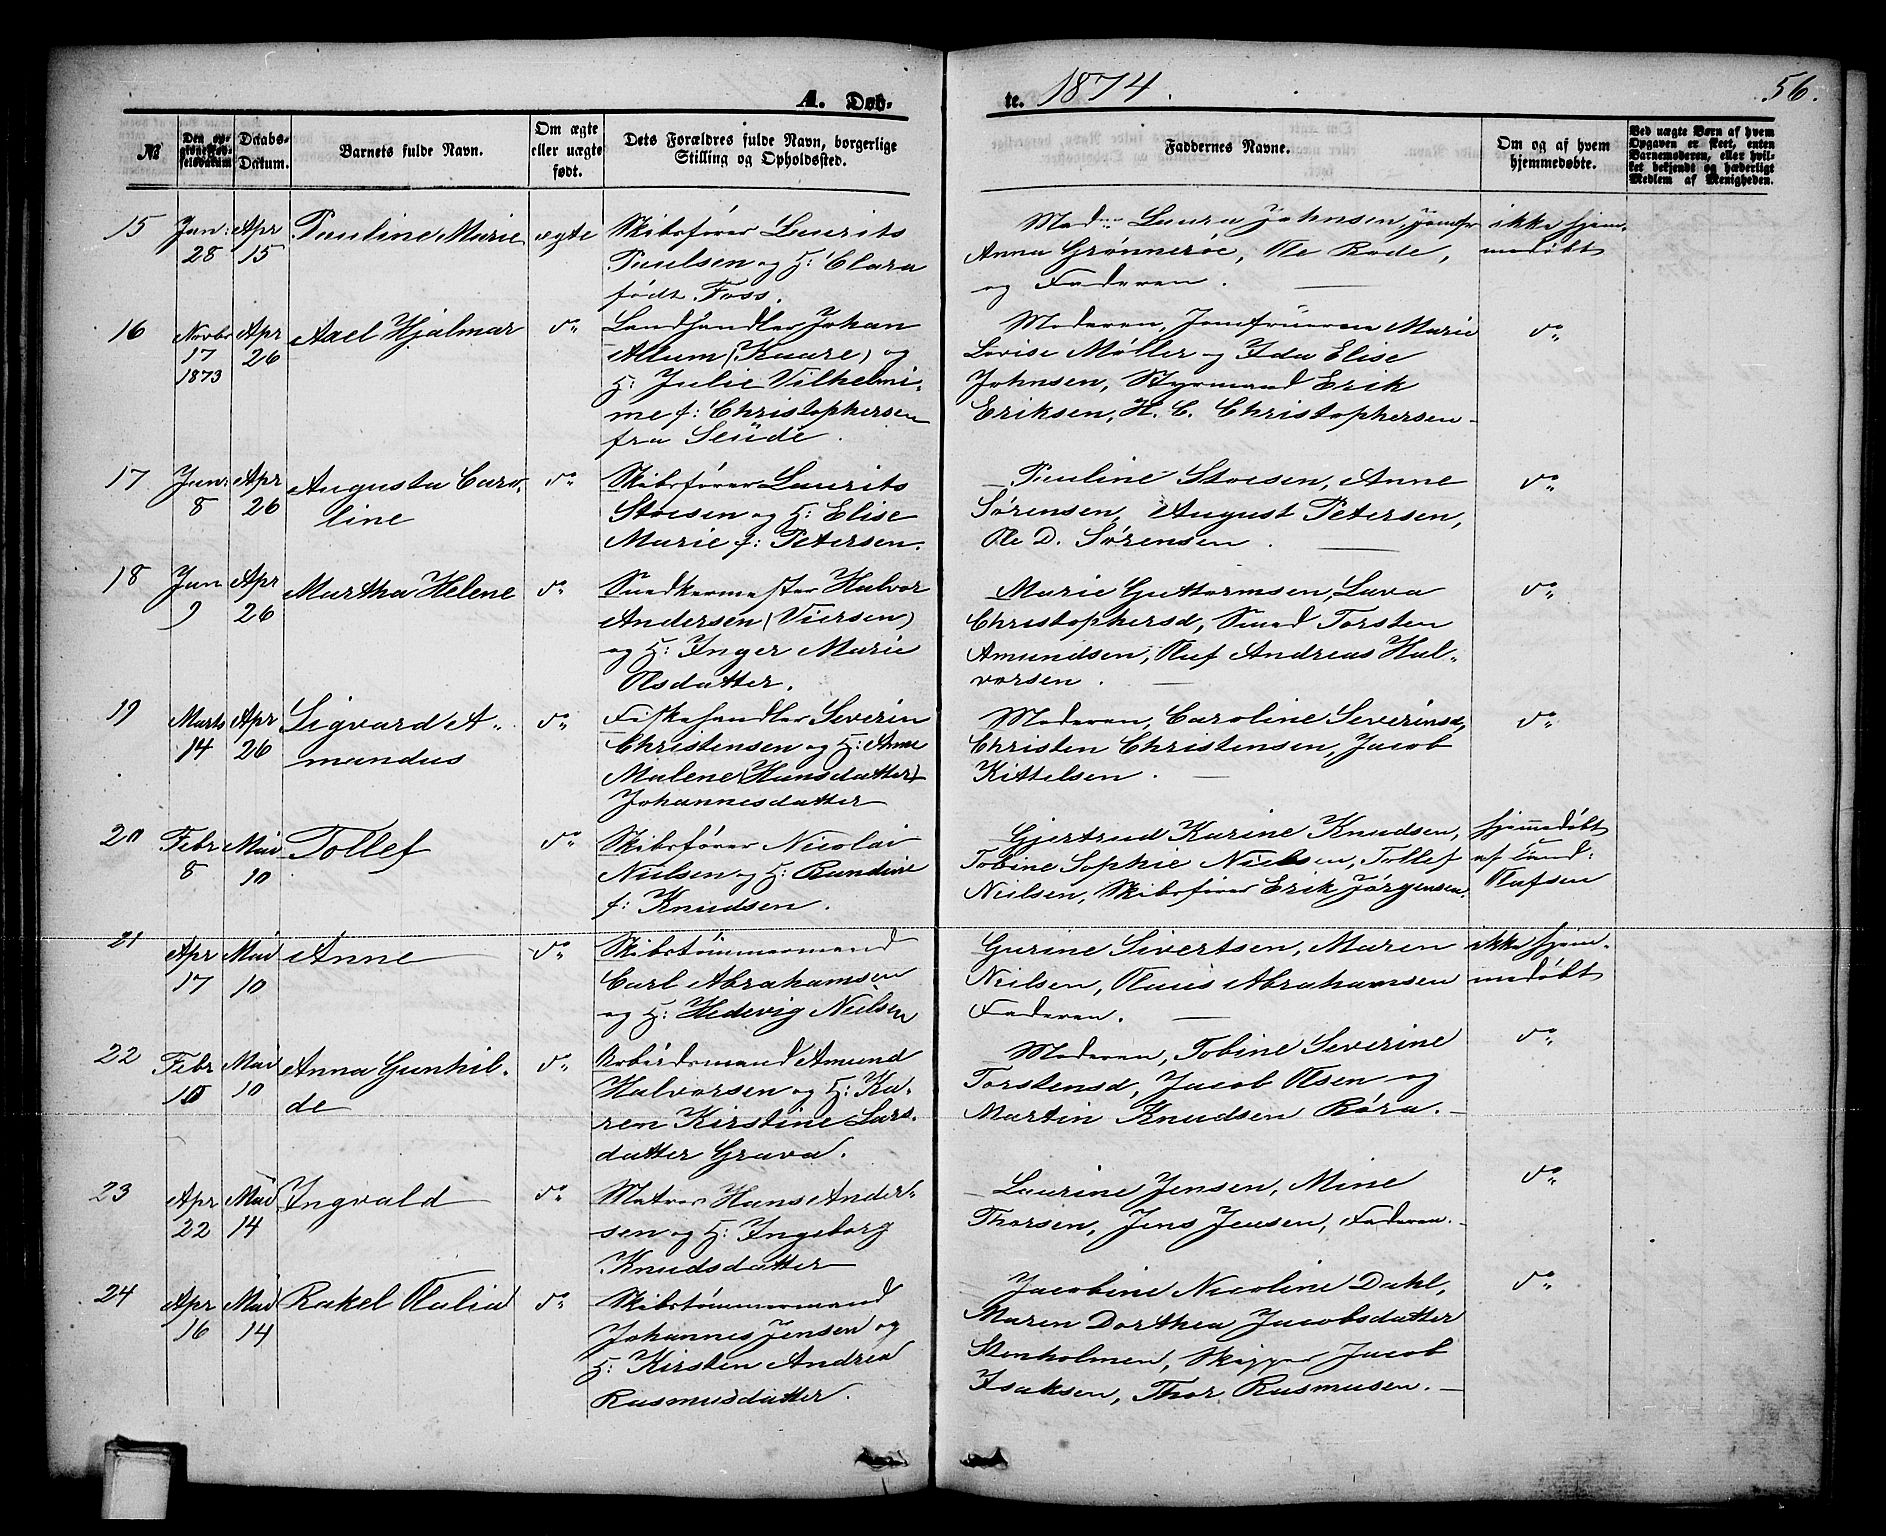 A. Døb-
te. 1874.
56.
№
Den op-
givne Fød-
selsdatum
Daabs-
Datum.
Barnets fulde Navn.
Om ægte
eller uægte
født.
Dets Forældres fulde Navn, borgerlige
Stilling og Opholdssted.
Faddernes Navne.
Om og af hvem
hjemmedøbte.
Ved uægte Børn af hvem
Opgaven er skeet, enten
Barnemoderen, eller hvil-
ket bekjendt og hæderligt
Medlem af Menigheden.
15
Jan:
28
Apr
15
Pauline Marie
ægte
Skibsfører Laurits
Paulsen og H: Clara
født Foss.
Mad.. Laura Johnsen, Jomfr
Anna Grønnerøe, Ole Rode,
og Faderen.
ikke hjem-
medøbt
16
Novbr
17
1873
Apr
26
Axel Hjalmar
do
Landhandler Johan
Allum (Kaare) og
H: Julie Vilhelmi-
ne f: Christophersen
fra Seude.
Moderen, Jomfruerne Marie
Lovise Møller og Ida Elise
Johnsen, Styrmand Erik
Eriksen, H. C. Christophersen-
do
17
Jan:
8
Apr
26
Augusta Caro-
line
do
Skibsfører Laurits
Stoesen og H: Elise
Marie f: Petersen.
Pauline Stoesen, Anne
Sørensen, August Petersen,
Ole D. Sørensen.
do
18
Jan
9
Apr
26
Martha Helene
do
Snedkermester Halvor
Andersen (Viersen)
og H: Inger Marie
Olsdatter.
Marie Guttormsen, Lava
Christophersd, Smed Torsten
Amundsen, Oluf Andreas Hal-
vorsen.
do
19
Marts
14
Apr
26
Sigvard A-
mandus
do
Fiskehandler Severin
Christensen og H: Anne
Malene (Hansdatter)
Johannesdatter
Moderen, Caroline Severinsd,
Christen Christensen, Jacob
Kittelsen.
do
20
Febr
8
Mai
10
Tollef
do
Skibsfører Nicolai
Nielsen og H: Rundine
f: Knudsen.
Gjertrud Karine Knudsen,
Tobine Sophie Nielsen, Tollef
Nielsen, Skibsfører Erik Jørgensen.
hjemmedøbt
af Cand:
Olufsen
21
Apr
17
Mai
10
Anne
do
Skibstømmermand
Carl Abrahamsen
og H: Hedevig Nielsen
Gurine Sivertsen, Maren
Nielsen, Olaus Abrahamsen
Faderen.
ikke hjem-
medøbt
22
Febr
10
Mai
10
Anna Gunhil-
de
do
Arbeidsmand Amund
Halvorsen og H: Ka-
ren Kirstine Lars-
datter Grava.
Moderen, Tobine Severine
Torstensd, Jacob Olsen og
Martin Knudsen Røra.
do
23
Apr
22
Mai
14
Ingvald
do
Matros Hans Ander-
sen og H: Ingeborg
Knudsdatter
Laurine Jensen, Mine
Thorsen, Jens Jensen, Faderen.
do
24
Apr
16
Mai
14
Rakel Olalia
do
Skibstømmermand
Johannes Jensen og
H: Kirsten Andrea
Rasmusdatter.
Jacobine Nicoline Dahl,
Maren Dorthea Jacobsdatter
Stenholmen, Skipper Jacob
Isaksen, Thor Rasmusen.
do